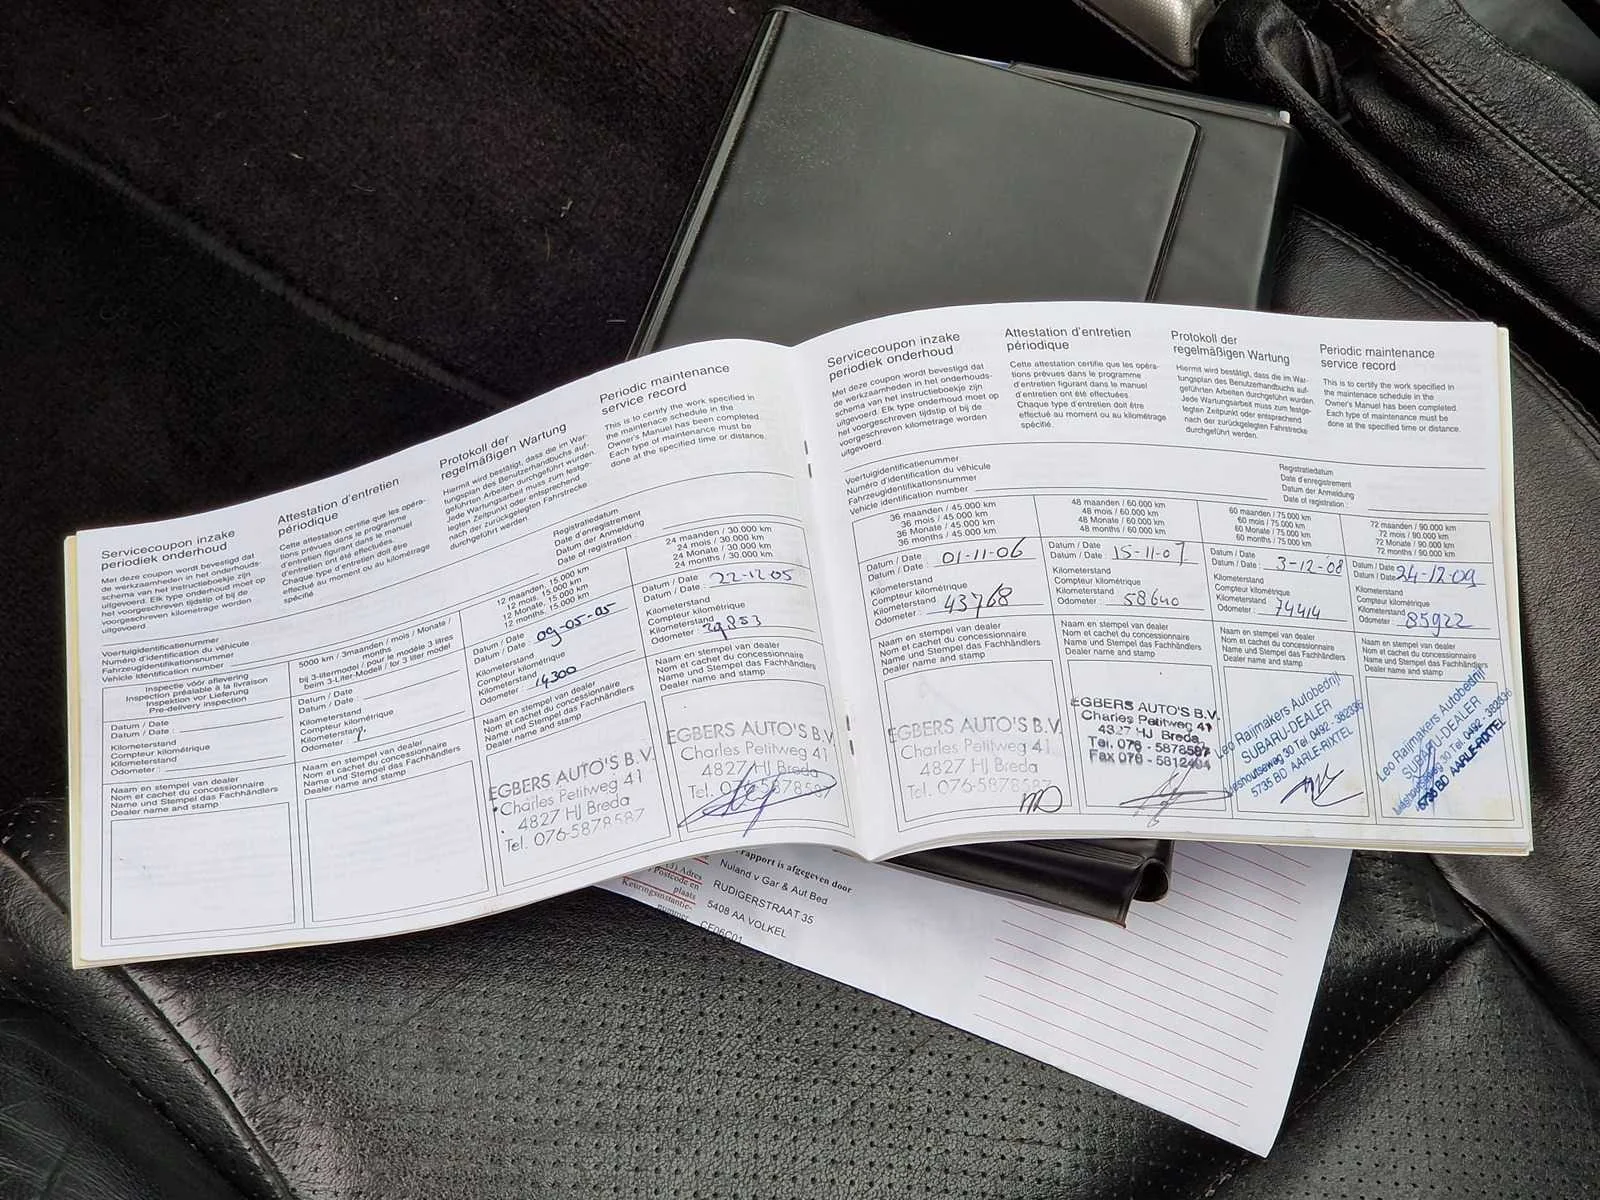 Servicecoupon inzake
periodiek onderhoud
Met deze coupon wordt bevestigd dat
de werkzaamheden in het onderhouds-
schema van het instructieboekje zijn
uitgevoerd. Elk type onderhoud moet op
het voorgeschreven tijdstip of bij de
voorgeschreven kilometrage worden
uitgevoerd.
Attestation d'entretien
périodique
Cette attestation certifie que les opéra-
tions prévues dans le programme
d'entretien figurant dans le manuel
d'entretien ont été effectuées.
Chaque type d'entretien doit être
effectué au moment ou au kilométrage
spécifié.
Protokoll der
regelmäßigen Wartung
Hiermit wird bestätigt, dass die im War-
tungsplan des Benutzerhandbuchs auf-
geführten Arbeiten durchgeführt wurden.
Jede Wartungsarbeit muss zum festge-
legten Zeitpunkt oder entsprechend
nach der zurückgelegten Fahrstrecke
durchgeführt werden.
Periodic maintenance
service record
This is to certify the work specified in
the maintenace schedule in the
Owner's Manual has been completed.
Each type of maintenance must be
done at the specified time or distance.
Voertuigidentificatienummer
Numéro d'identification du véhicule
Fahrzeugidentifikationsnummer
Vehicle identification number
Registratiedatum
Date d'enregistrement
Datum der Anmeldung
Date of registration :
Inspectie vóór aflevering
Inspection préalable à la livraison
Inspektion vor Lieferung
Pre-delivery inspection
Datum / Date
Datum / Date :
Kilometerstand
Compteur kilométrique
Kilometerstand
Odometer :
Naam en stempel van dealer
Nom et cachet du concessionnaire
Name und Stempel das Fachhändlers
Dealer name and stamp
5000 km / 3maanden / mois / Monate /
months
bij 3-litermodel / pour le modèle 3 litres
beim 3-Liter-Modell / for 3 liter model
Datum / Date
Datum / Date :
Kilometerstand
Compteur kilométrique
Kilometerstand
Odometer :
Naam en stempel van dealer
Nom et cachet du concessionnaire
Name und Stempel das Fachhändlers
Dealer name and stamp
12 maanden, 15.000 km
12 mois, 15.000 km
12 Monate, 15.000 km
12 months, 15.000 km
Datum / Date
Datum / Date : 09-05-05
Kilometerstand
Compteur kilométrique
Kilometerstand
Odometer : 14300
Naam en stempel van dealer
Nom et cachet du concessionnaire
Name und Stempel das Fachhändlers
Dealer name and stamp
EGBERS AUTO'S B.V.
Charles Petitweg 41
4827 HJ Breda
Tel. 076-5878587
24 maanden / 30.000 km
24 mois / 30.000 km
24 Monate / 30.000 km
24 months / 30.000 km
Datum / Date
Datum / Date : 22-12-05
Kilometerstand
Compteur kilométrique
Kilometerstand
Odometer : 29853
Naam en stempel van dealer
Nom et cachet du concessionnaire
Name und Stempel das Fachhändlers
Dealer name and stamp
EGBERS AUTO'S B.V.
Charles Petitweg 41
4827 HJ Breda
Tel. 076-5878587
Servicecoupon inzake
periodiek onderhoud
Met deze coupon wordt bevestigd dat
de werkzaamheden in het onderhouds-
schema van het instructieboekje zijn
uitgevoerd. Elk type onderhoud moet op
het voorgeschreven tijdstip of bij de
voorgeschreven kilometrage worden
uitgevoerd.
Attestation d'entretien
périodique
Cette attestation certifie que les opéra-
tions prévues dans le programme
d'entretien figurant dans le manuel
d'entretien ont été effectuées.
Chaque type d'entretien doit être
effectué au moment ou au kilométrage
spécifié.
Protokoll der
regelmäßigen Wartung
Hiermit wird bestätigt, dass die im War-
tungsplan des Benutzerhandbuchs auf-
geführten Arbeiten durchgeführt wurden.
Jede Wartungsarbeit muss zum festge-
legten Zeitpunkt oder entsprechend
nach der zurückgelegten Fahrstrecke
durchgeführt werden.
Periodic maintenance
service record
This is to certify the work specified in
the maintenace schedule in the
Owner's Manual has been completed.
Each type of maintenance must be
done at the specified time or distance.
Voertuigidentificatienummer
Numéro d'identification du véhicule
Fahrzeugidentifikationsnummer
Vehicle identification number
Registratiedatum
Date d'enregistrement
Datum der Anmeldung
Date of registration :
36 maanden / 45.000 km
36 mois / 45.000 km
36 Monate / 45.000 km
36 months / 45.000 km
Datum / Date
Datum / Date : 01-11-06
Kilometerstand
Compteur kilométrique
Kilometerstand
Odometer : 43768
Naam en stempel van dealer
Nom et cachet du concessionnaire
Name und Stempel das Fachhändlers
Dealer name and stamp
EGBERS AUTO'S B.V.
Charles Petitweg 41
4827 HJ Breda
Tel. 076-5878587
48 maanden / 60.000 km
48 mois / 60.000 km
48 Monate / 60.000 km
48 months / 60.000 km
Datum / Date
Datum / Date : 15-11-07
Kilometerstand
Compteur kilométrique
Kilometerstand
Odometer : 58640
Naam en stempel van dealer
Nom et cachet du concessionnaire
Name und Stempel das Fachhändlers
Dealer name and stamp
EGBERS AUTO'S B.V.
Charles Petitweg 41
4827 HJ Breda
Tel. 076 - 5878587
Fax 076 - 5812404
60 maanden / 75.000 km
60 mois / 75.000 km
60 Monate / 75.000 km
60 months / 75.000 km
Datum / Date
Datum / Date : 3-12-08
Kilometerstand
Compteur kilométrique
Kilometerstand
Odometer : 74414
Naam en stempel van dealer
Nom et cachet du concessionnaire
Name und Stempel das Fachhändlers
Dealer name and stamp
Leo Raijmakers Autobedrijf
SUBARU-DEALER
30 Tel. 0492 - 382336
5735 BD AARLE-RIXTEL
72 maanden / 90.000 km
72 mois / 90.000 km
72 Monate / 90.000 km
72 months / 90.000 km
Datum / Date
Datum / Date 24-12-09
Kilometerstand
Compteur kilométrique
Kilometerstand
Odometer : 85922
Naam en stempel van dealer
Nom et cachet du concessionnaire
Name und Stempel das Fachhändlers
Dealer name and stamp
Leo Raijmakers Autobedrijf
SUBARU-DEALER
30 Tel. 0492 - 382336
5735 BD AARLE-RIXTEL
rapport is afgegeven door
Nuland v Gar & Aut Bed
Adres
RUDIGERSTRAAT 35
Postcode en
plaats
5408 AA VOLKEL
Keuringsinstantie-
nummer
CE06C01